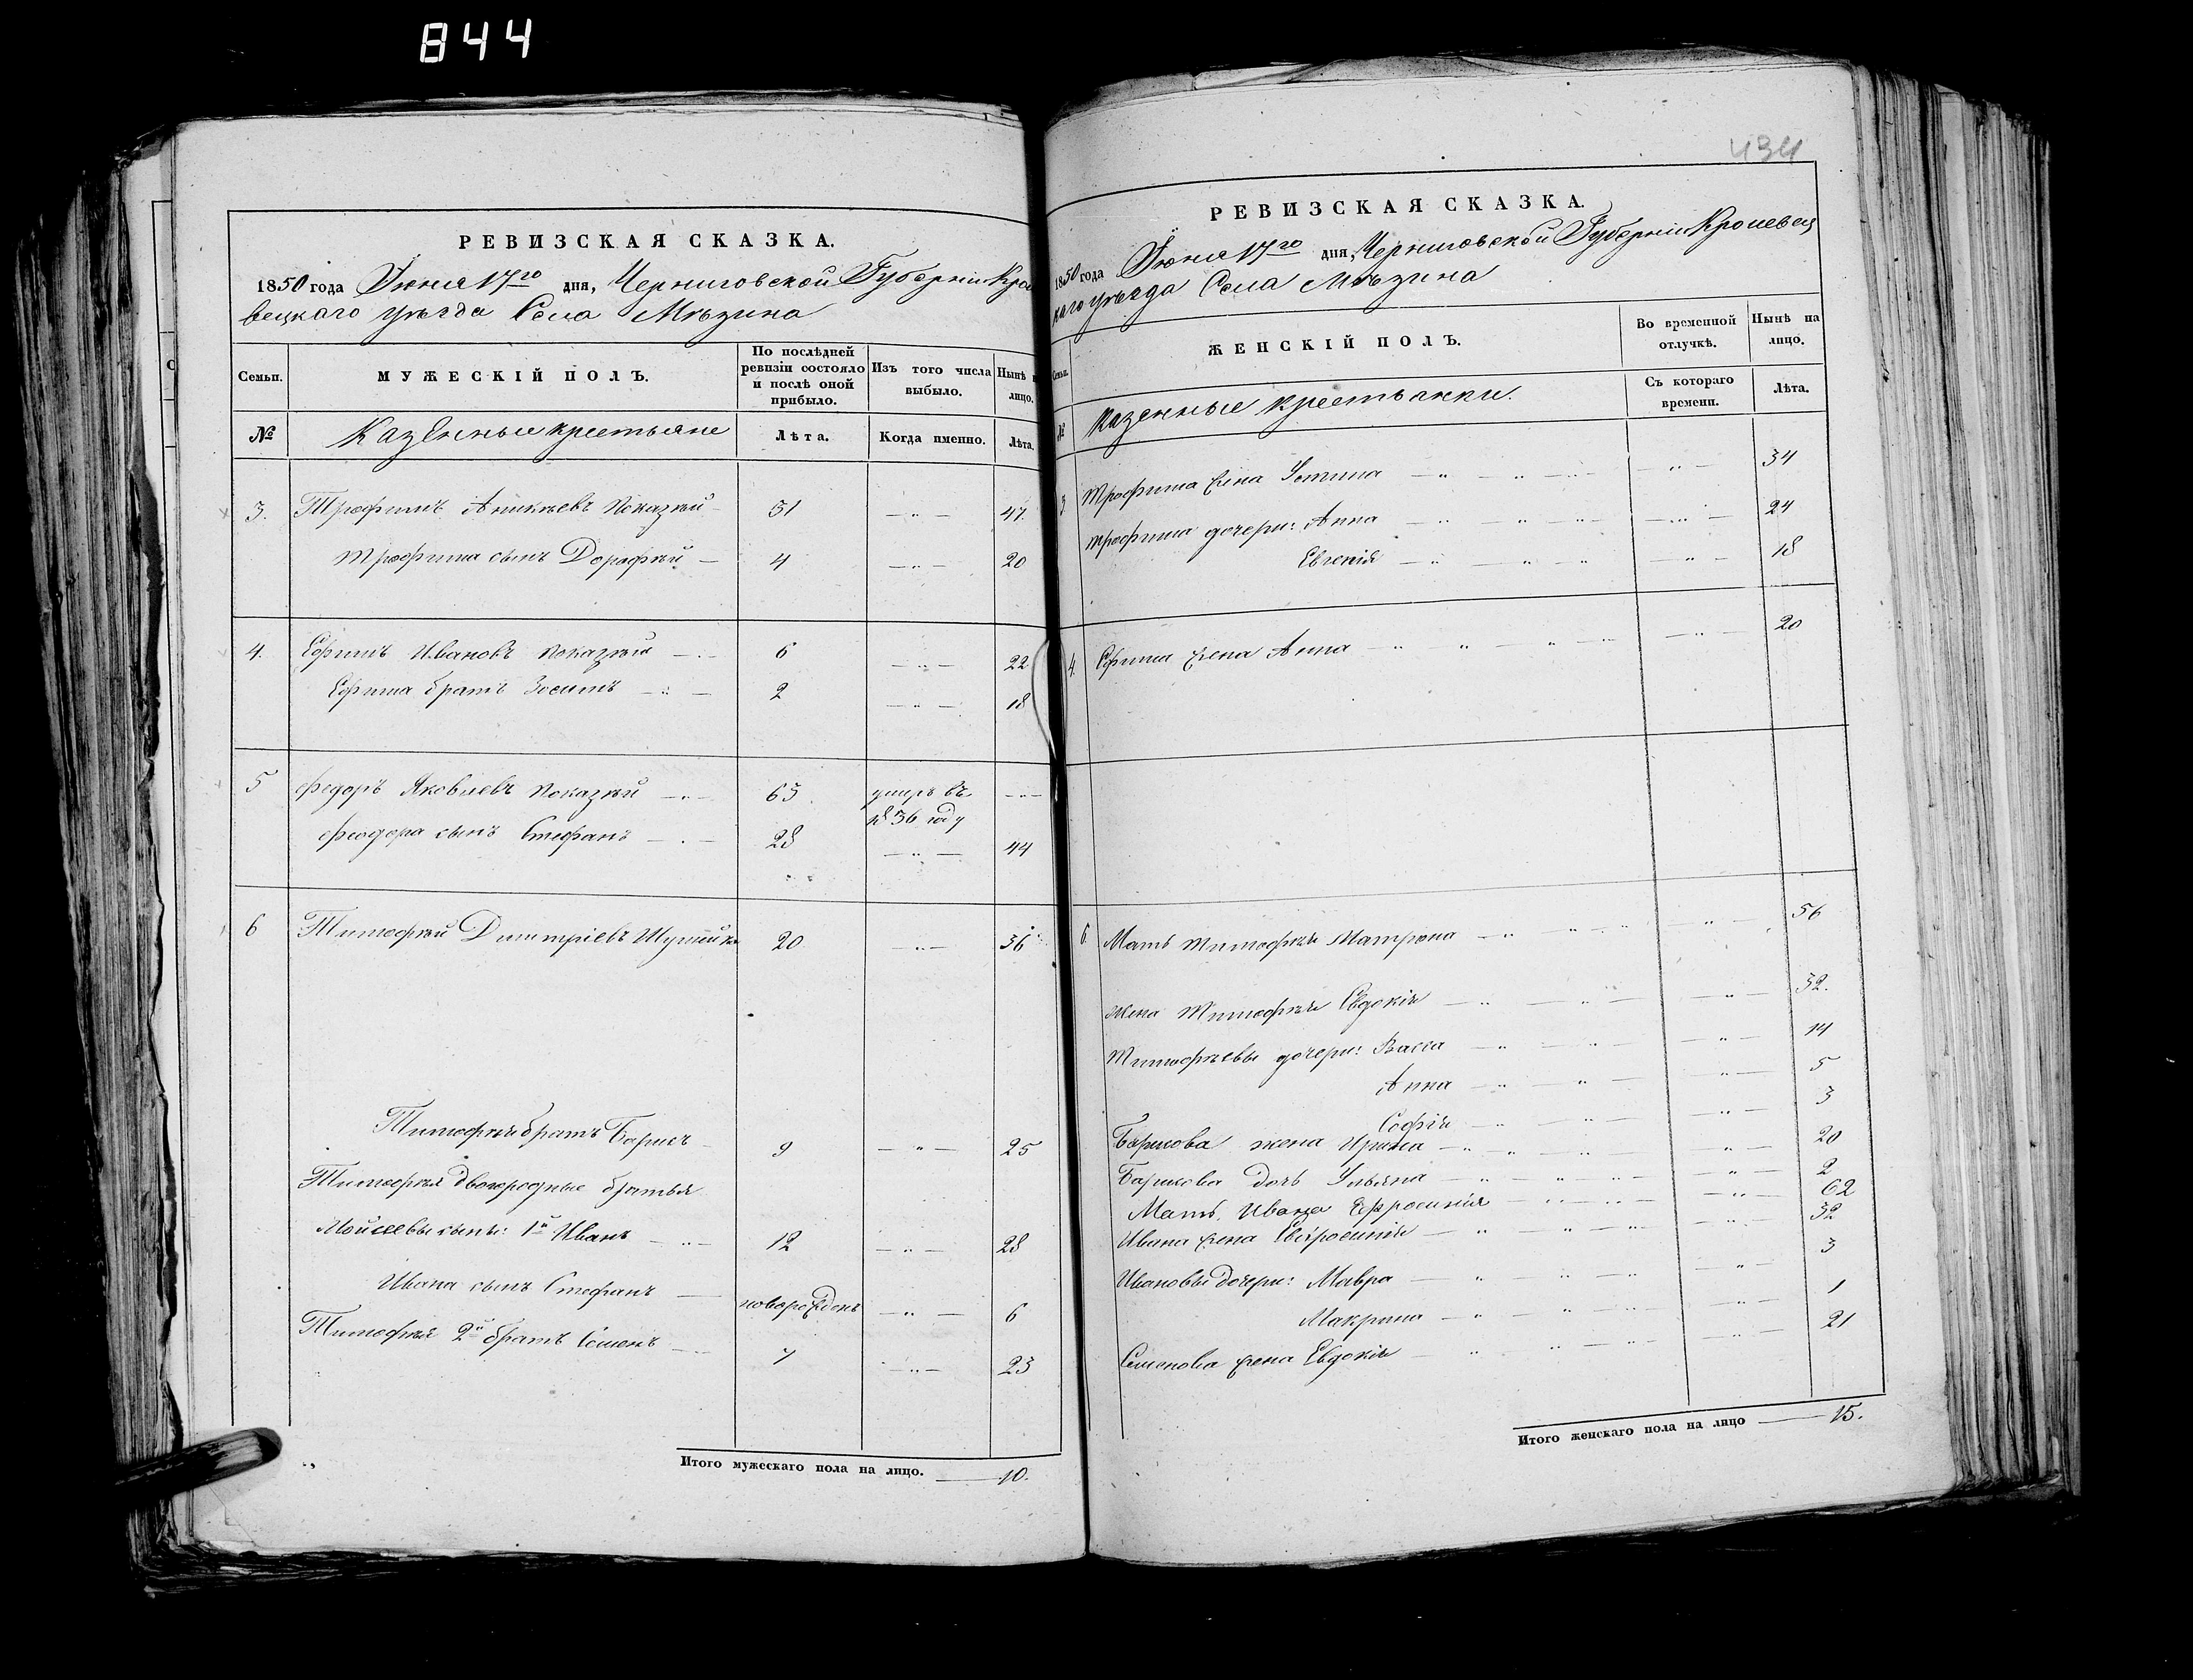 844
434
РЕВИЗСКАЯ СКАЗКА.
1850 года Июня 17го дня, Черниговской Губерніи Кроле
вецкаго уѣзда Села Мѣзина
Семьи.
МУЖЕСКІЙ ПОЛЪ.
По послѣдней ревизіи состояло и послѣ оной прибыло.
Изъ того числа выбыло.
Нынѣ на лицо.
№
Казенные крестьяне
Лѣта.
Когда именно.
Лѣта.
3. Трофимъ Аникѣевъ Показѣй 31 — „ — 47.
Трофима сынъ Дорофѣй — 4 — „ — 20
4. Ефимъ Ивановъ Показѣй — 6 — „ — 22
Ефима братъ Зосимъ — „ — 2 — „ — 18
5 Федоръ Яковлевъ Показѣй — „ — 63 умеръ въ — „ —
1836 году
Феодора сынъ Стефанъ — „ — 28 — „ — 44
6 Тимофѣй Димитріевъ 20 — „ — 36
Тимофѣя братъ Борисъ 9 — „ — 25
Тимофѣя двоюродные братья
Мойсеевы сыны: 1й Иванъ — „ — 12 — „ — 28
Ивана сынъ Стефанъ — новорожденъ — „ — 6
Тимофѣя 2й братъ Семенъ — 7 — „ — 23
Итого мужескаго пола на лицо. — 10.
РЕВИЗСКАЯ СКАЗКА.
1850 года Июня 17го дня, Черниговской Губерніи Кролевец
каго уѣзда Села Мѣзина
Семьи.
ЖЕНСКІЙ ПОЛЪ.
Во временной отлучкѣ.
Нынѣ на лицо.
№
Казенные крестьянки.
Съ котораго времени.
Лѣта.
3 Трофима жена Устина — „ — 34
Трофима дочери: Анна — „ — 24
Евгенія — „ — 18
4. Ефима жена Анна — „ — 20
6. Мать Тимофѣя Матрона — „ — 56
жена Тимофѣя Евдокія — „ — 32.
Тимофѣевы дочери: Васса — „ — 14
Анна — „ — 5
Софія — „ — 3
Борисова жена Ирина — „ — 20
Борисова дочь Ульяна — „ — 2
Мать Ивана Ефросинія — „ — 62
Ивана жена Евфросинія — „ — 32
Ивановы дочери: Мавра — „ — 3
Макрина — „ — 1
Семенова жена Евдокія — „ — 21
Итого женскаго пола на лицо — 15.